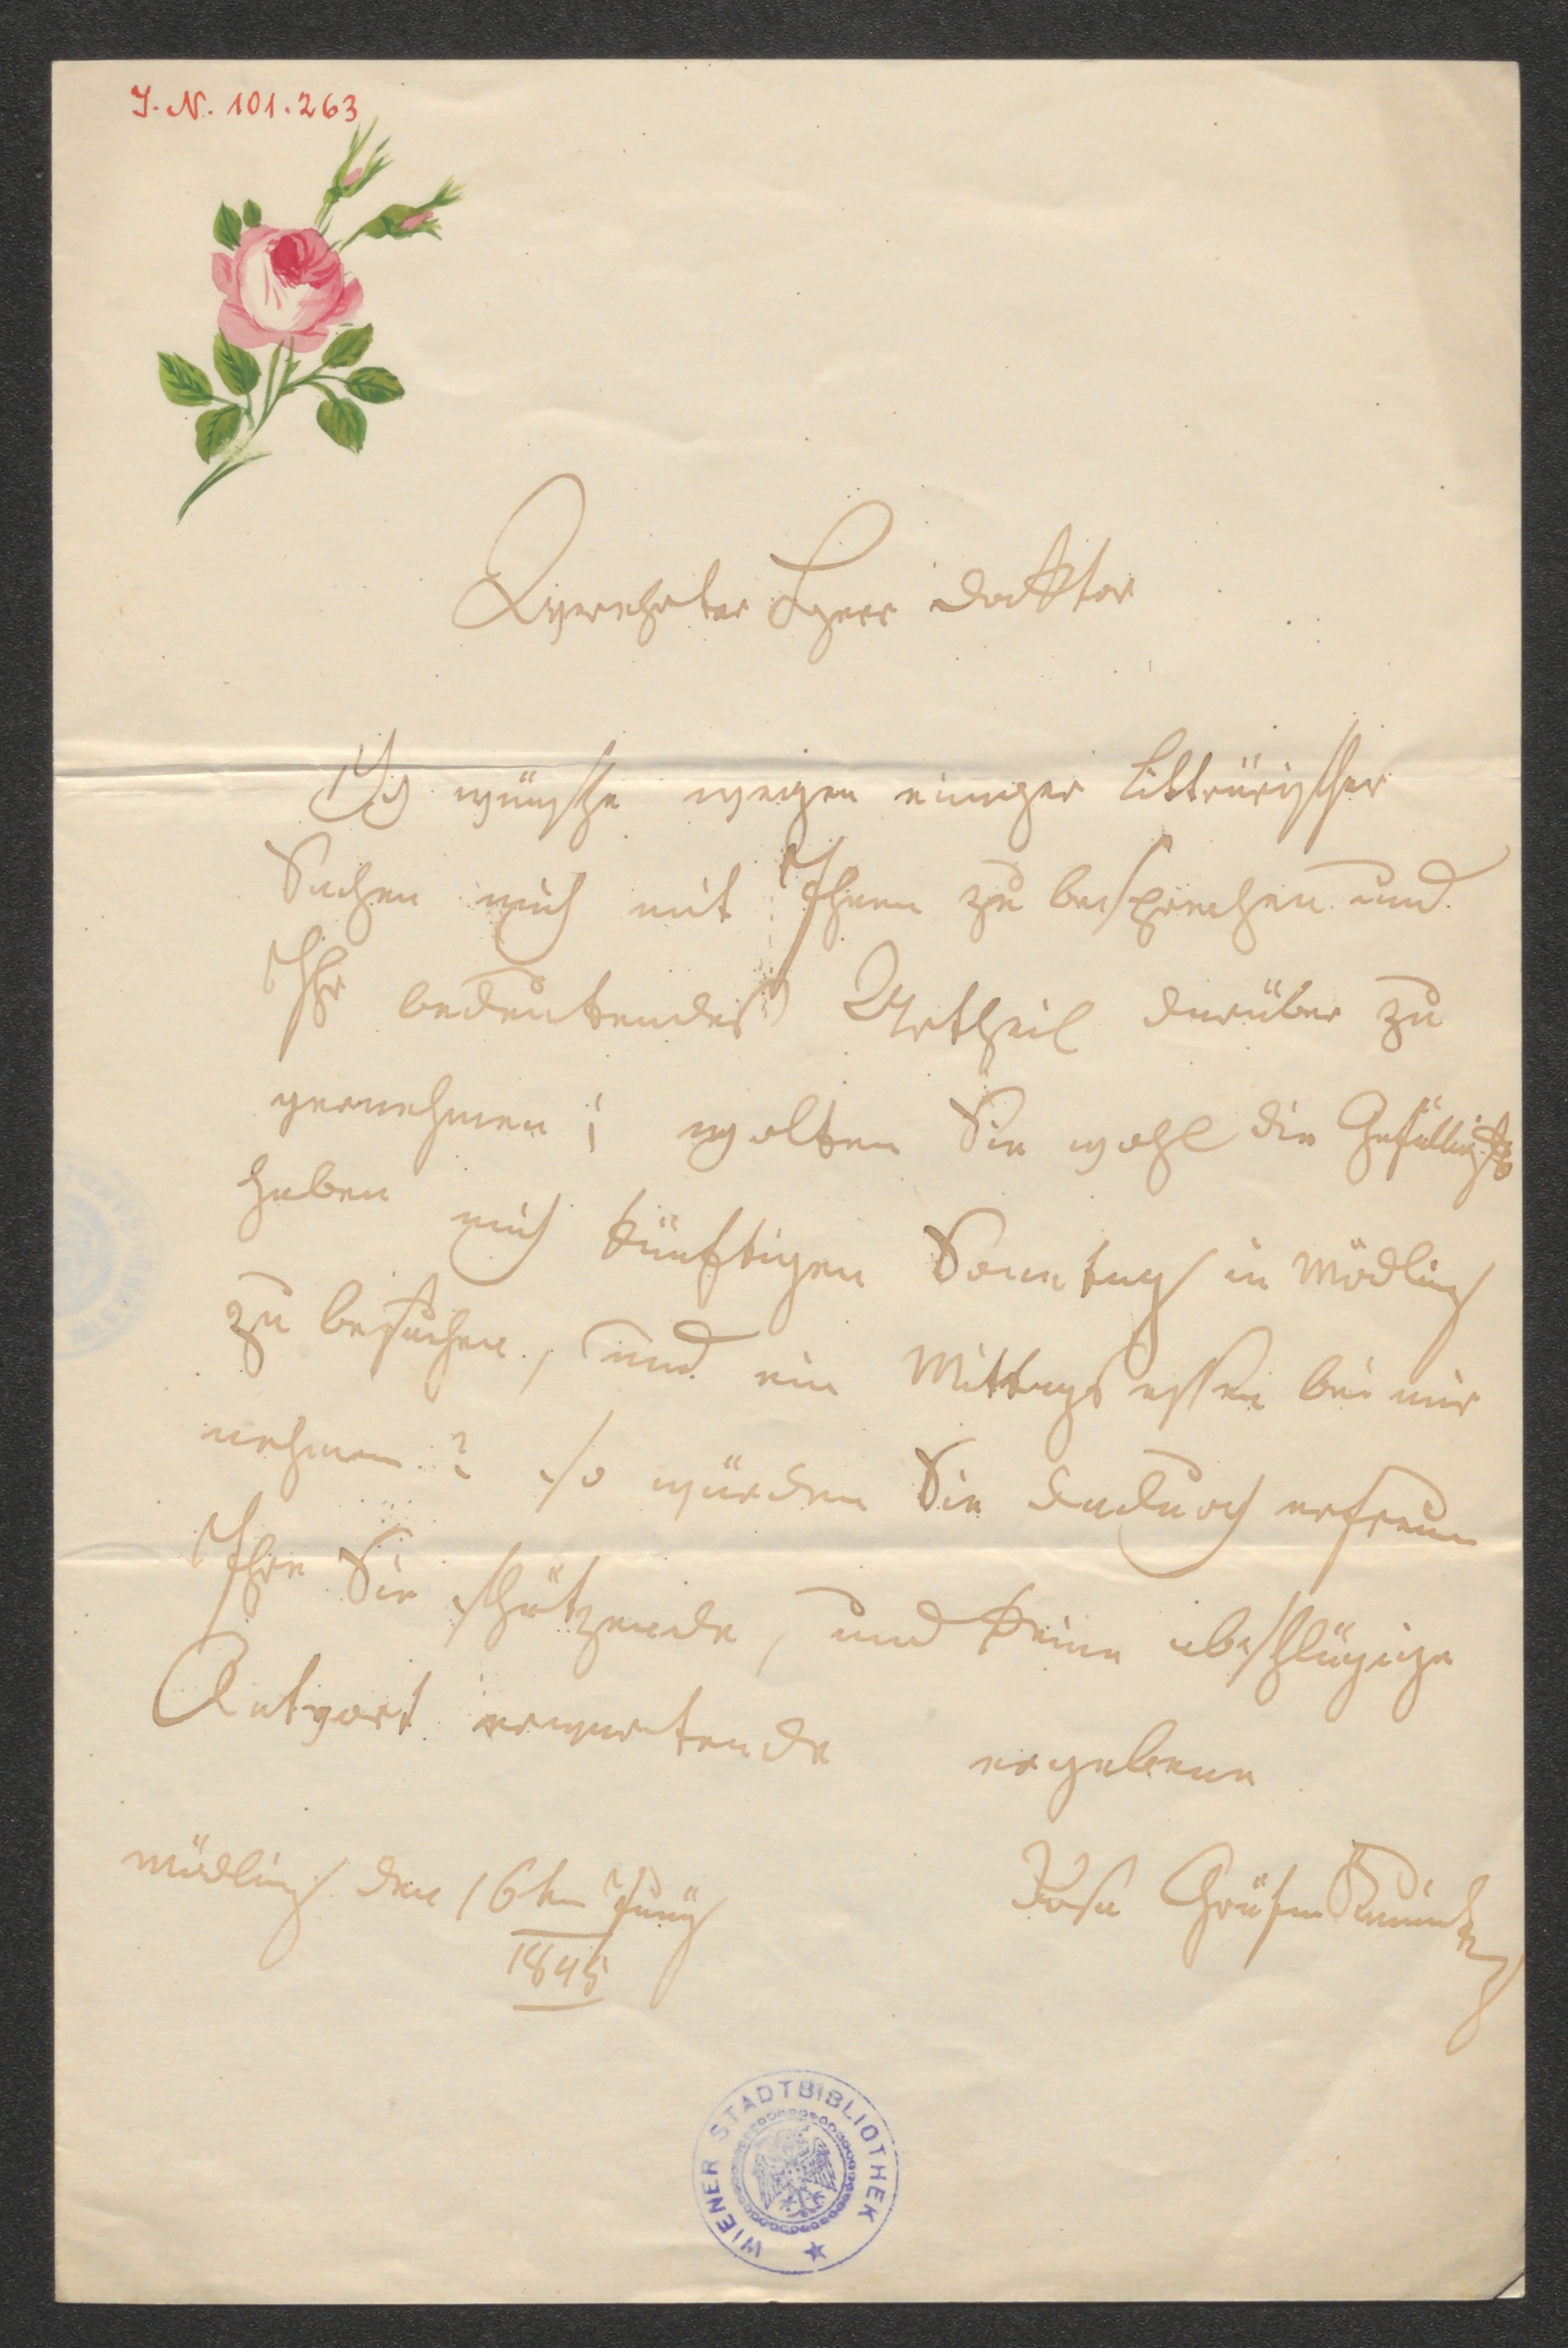 J. N. 101.263
Verehrter Herr Doktor
Ich wünsche wegen einiger Litträrischer
Sachen mich mit Ihnen zu besprechen und
Ihr bedeutendes Urtheil darüber zu
vernehmen; wolten Sie wohl die Gefälligkt
haben mich künftigen Sonntag in Mödling
zu besuchen, und ein Mittags essen bei mir
nehmen? so würden Sie dadurch erfreun
Ihre Sie schätzende, und keine abschlägige
Antwort erwartende ergebene
Mödling den 16ten Juny Rosa Gräfin
1845
WIENER STADTBIBLIOTHEK